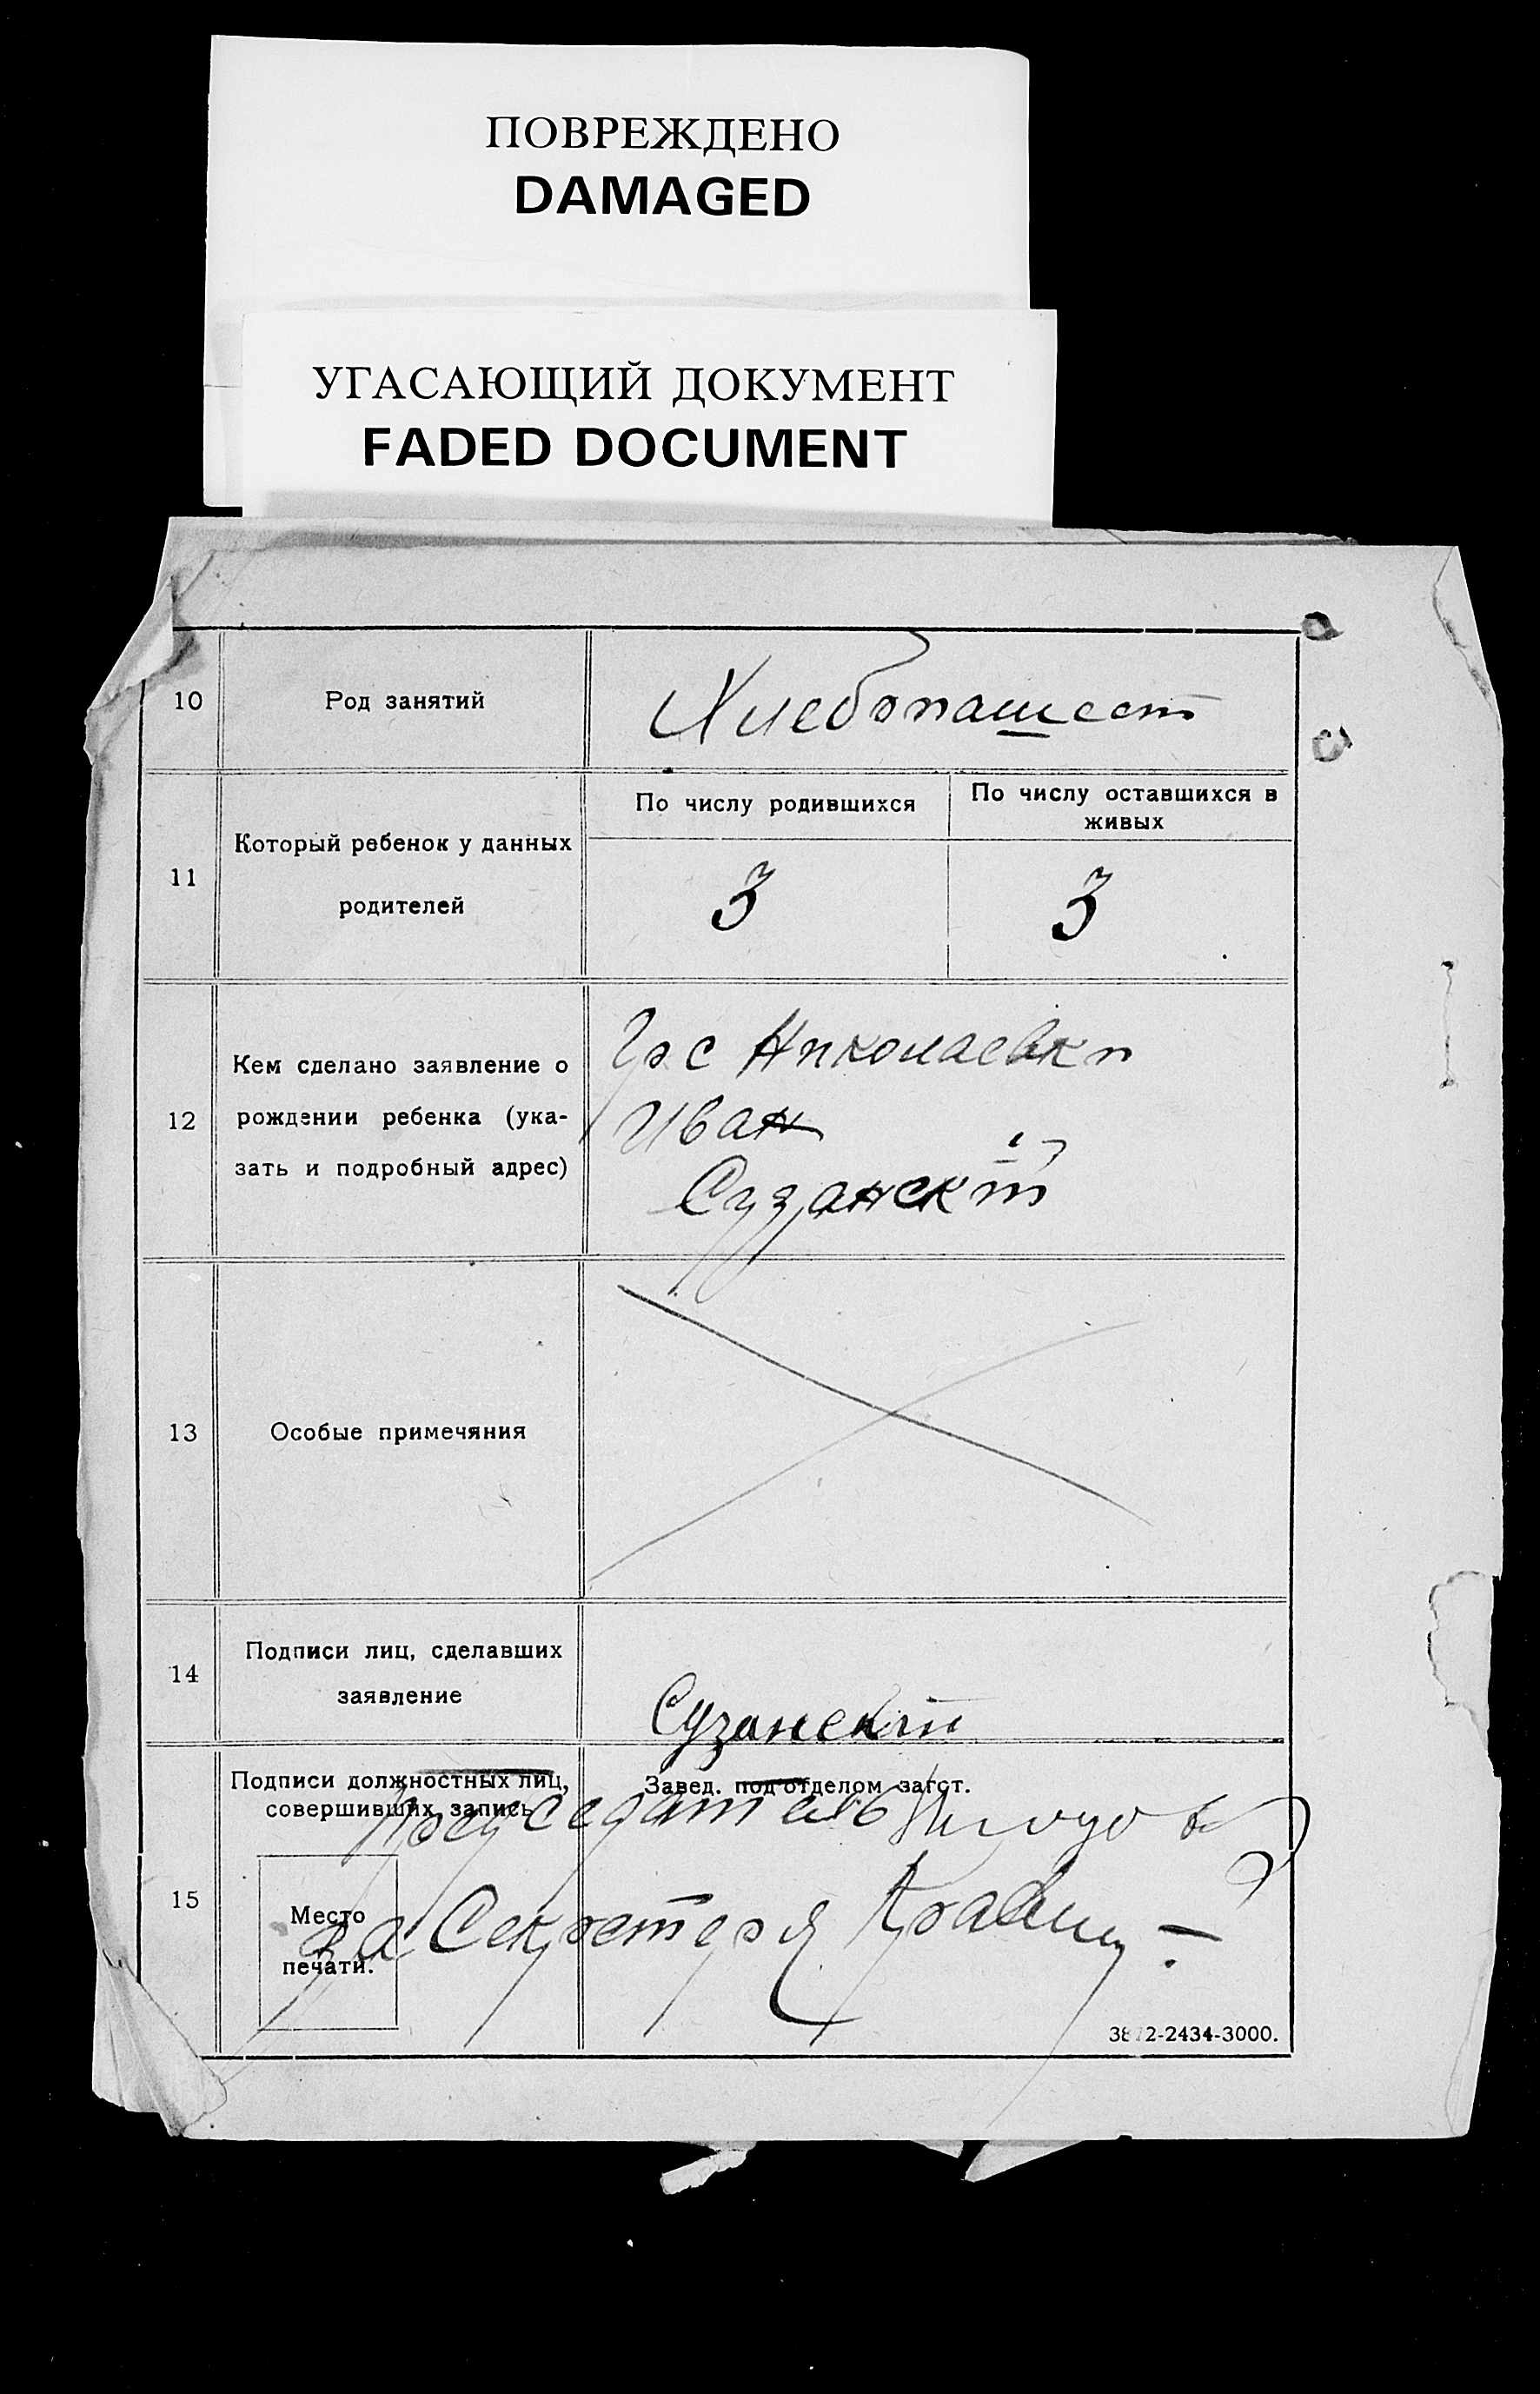 ПОВРЕЖДЕНО
DAMAGED
УГАСАЮЩИЙ ДОКУМЕНТ
FADED DOCUMENT
10 Род занятий Хлебопашест
11 Который ребенок у данных родителей
По числу родившихся
По числу оставшихся в живых
3 3
12 Кем сделано заявление о
рождении ребенка (ука-
зать и подробный адрес)
Гр с Николаевки
Иван
Сузанскій
13 Особые примечяния
14 Подписи лиц, сделавших
заявление
Сузанский
15 Подписи должностных лиц,
совершивших запись
Завед. подотделом загст.
Председатель
Место
печати.
за Секретаря
2-2434-3000.